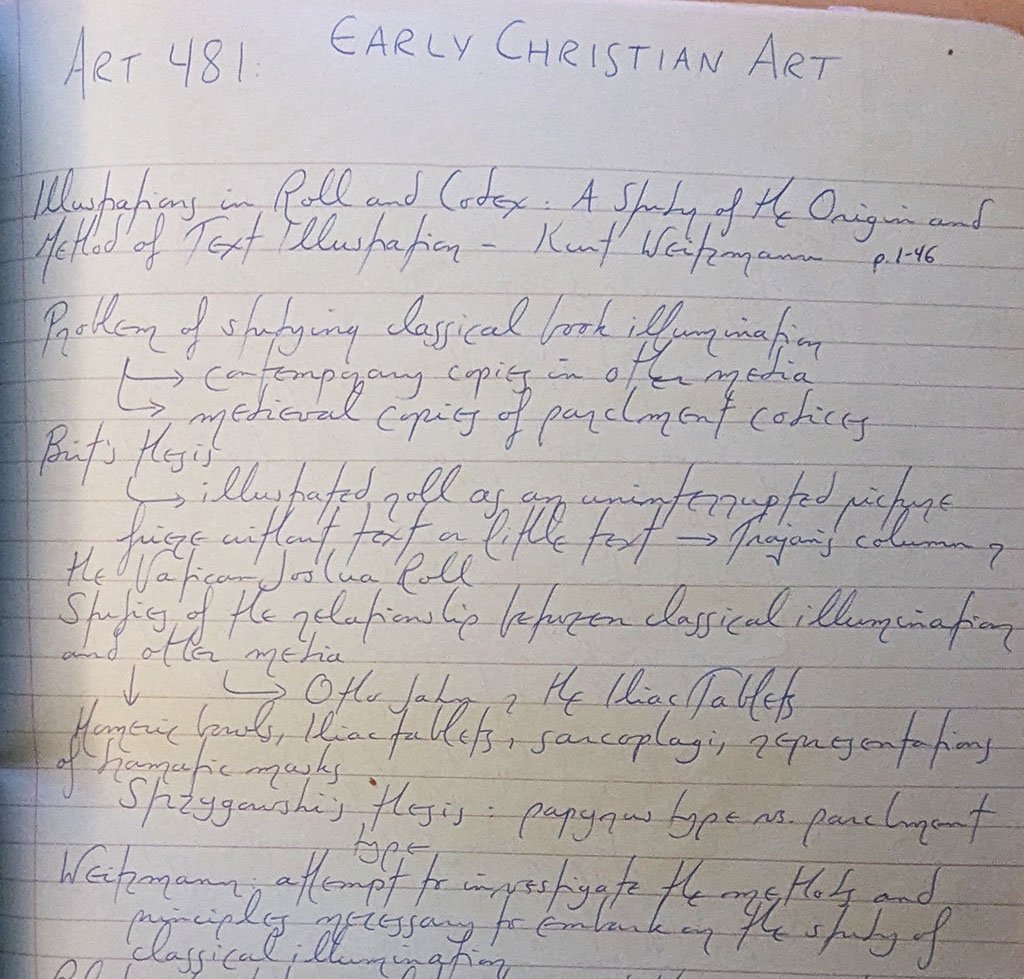 ART 481: EARLY CHRISTIAN ART
Illustrations in Roll and Codex: A Study of the Origin and
Method of Text Illustration - Kurt Weitzmann p. 1-46
Problem of studying classical book illumination
↳ contemporary copies in other media
↳ medieval copies of parchment codices
Birt's thesis
↳ illustrated roll as an uninterrupted picture
frieze without text or little text → Trajan's column &
the Vatican Joshua Roll
Studies of the relationship between classical illumination
and other media
↓ ↳ Otto Jahn & the Iliac Tablets
Homeric bowls, Iliac tablets, sarcophagi, representations
of dramatic masks
Strzygowski's thesis: papyrus type vs. parchment
type
Weitzmann: attempt to investigate the methods and
principles necessary to embark on the study of
classical illumination